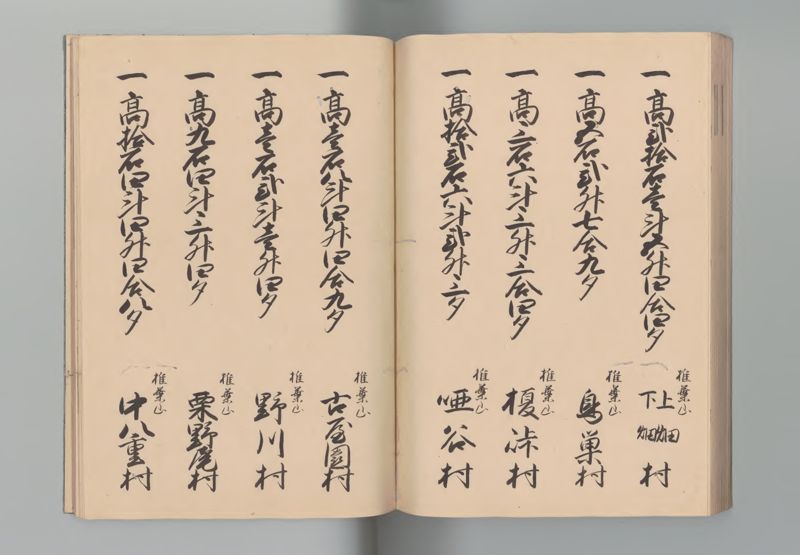 一 高弐拾石壱斗五升四合四夕
椎葉山
上畑
下畑
村
一 高五石弐升七合九夕
椎葉山
鳥巣村
一 高三石六斗三升三合四夕
椎葉山
榎峠村
一 高拾弐石六斗弐升三夕
椎葉山
唖谷村
一 高壱石八斗四升四合九夕
椎葉山
古屋園村
一 高壱石弐斗壱升四夕
椎葉山
野川村
一 高九石四斗三升四夕
椎葉山
栗野尾村
一 高拾石四斗四升四合八夕
椎葉山
中八重村